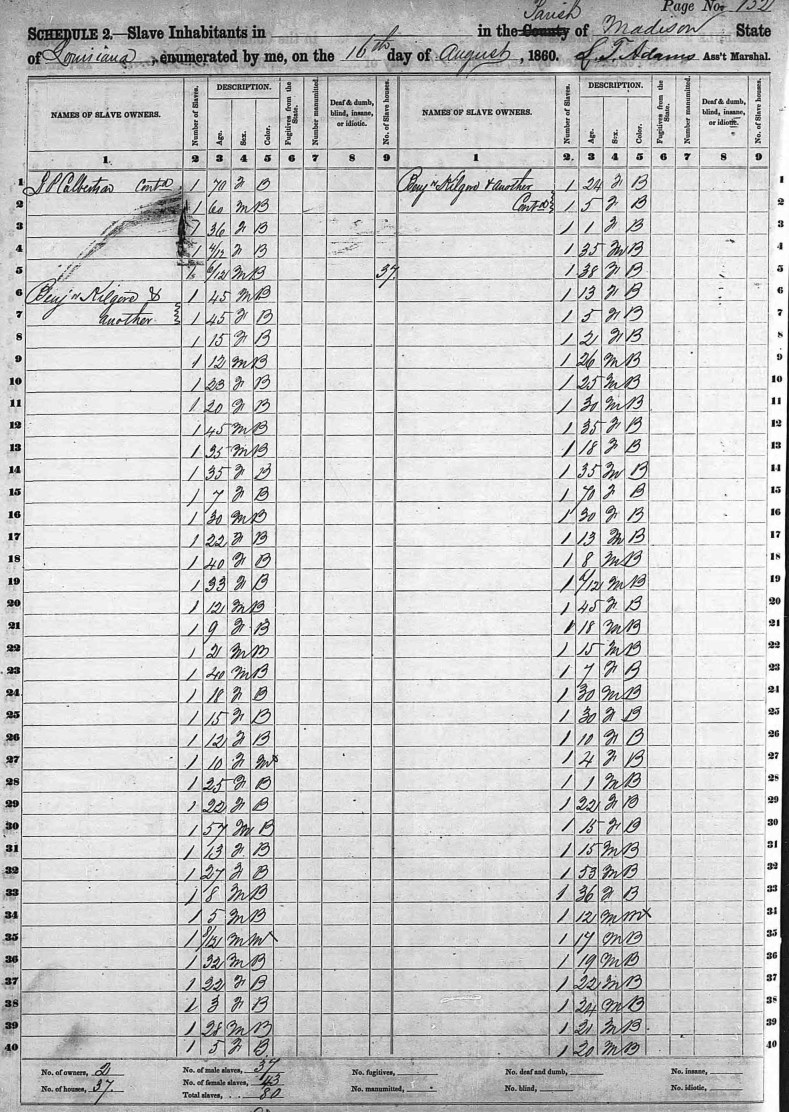 Page No. 152
SCHEDULE 2.—Slave Inhabitants in in the County Parish of Madison State
of Louisiana, enumerated by me, on the 16th day of August, 1860. L. T. Adams Ass't Marshal.
NAMES OF SLAVE OWNERS. Number of Slaves. DESCRIPTION. Age. Sex. Color. Fugitives from the State. Number manumitted. Deaf & dumb, blind, insane, or idiotic. No. of Slave houses. NAMES OF SLAVE OWNERS. Number of Slaves. DESCRIPTION. Age. Sex. Color. Fugitives from the State. Number manumitted. Deaf & dumb, blind, insane, or idiotic. No. of Slave houses.
1. 2 3 4 5 6 7 8 9 1 2. 3 4 5 6 7 8 9
1 Contd 1 70 F B Benjn Kilgore & another 1 24 F B 1
2 1 60 M B Contd 1 5 F B 2
3 1 36 F B 1 1 F B 3
4 1 4/12 F B 1 35 M B 4
5 1 6/12 M B 37 1 38 F B 5
6 Benjn Kilgore & 1 45 M B 1 13 F B 6
7 another 1 45 F B 1 5 F B 7
8 1 15 F B 1 2 F B 8
9 1 12 M B 1 26 M B 9
10 1 23 F B 1 25 M B 10
11 1 20 F B 1 30 M B 11
12 1 45 M B 1 35 F B 12
13 1 35 M B 1 18 F B 13
14 1 35 F B 1 35 M B 14
15 1 7 F B 1 70 F B 15
16 1 30 M B 1 30 F B 16
17 1 22 F B 1 13 M B 17
18 1 40 F B 1 8 M B 18
19 1 33 F B 1 6/12 M B 19
20 1 12 M B 1 45 F B 20
21 1 9 F B 1 18 M B 21
22 1 2 M B 1 15 M B 22
23 1 40 M B 1 7 F B 23
24 1 18 F B 1 30 M B 24
25 1 15 F B 1 30 F B 25
26 1 12 F B 1 10 F B 26
27 1 10 F Mx 1 4 F B 27
28 1 25 F B 1 1 M B 28
29 1 22 F B 1 22 F B 29
30 1 57 M B 1 15 F B 30
31 1 13 F B 1 15 M B 31
32 1 27 F B 1 53 M B 32
33 1 8 M B 1 36 F B 33
34 1 5 M B 1 12 M Mx 34
35 1 8/12 M Mx 1 17 M B 35
36 1 32 M B 1 19 M B 36
37 1 22 F B 1 22 M B 37
38 1 3 F B 1 24 M B 38
39 1 28 M B 1 21 M B 39
40 1 5 F B 1 20 M B 40
No. of owners, 2 No. of male slaves, 37 No. of fugitives, No. of deaf and dumb, No. of insane,
No. of houses, 37. No. of female slaves, 43 No. manumitted, No. blind, No. idiotic,
Total slaves, 80